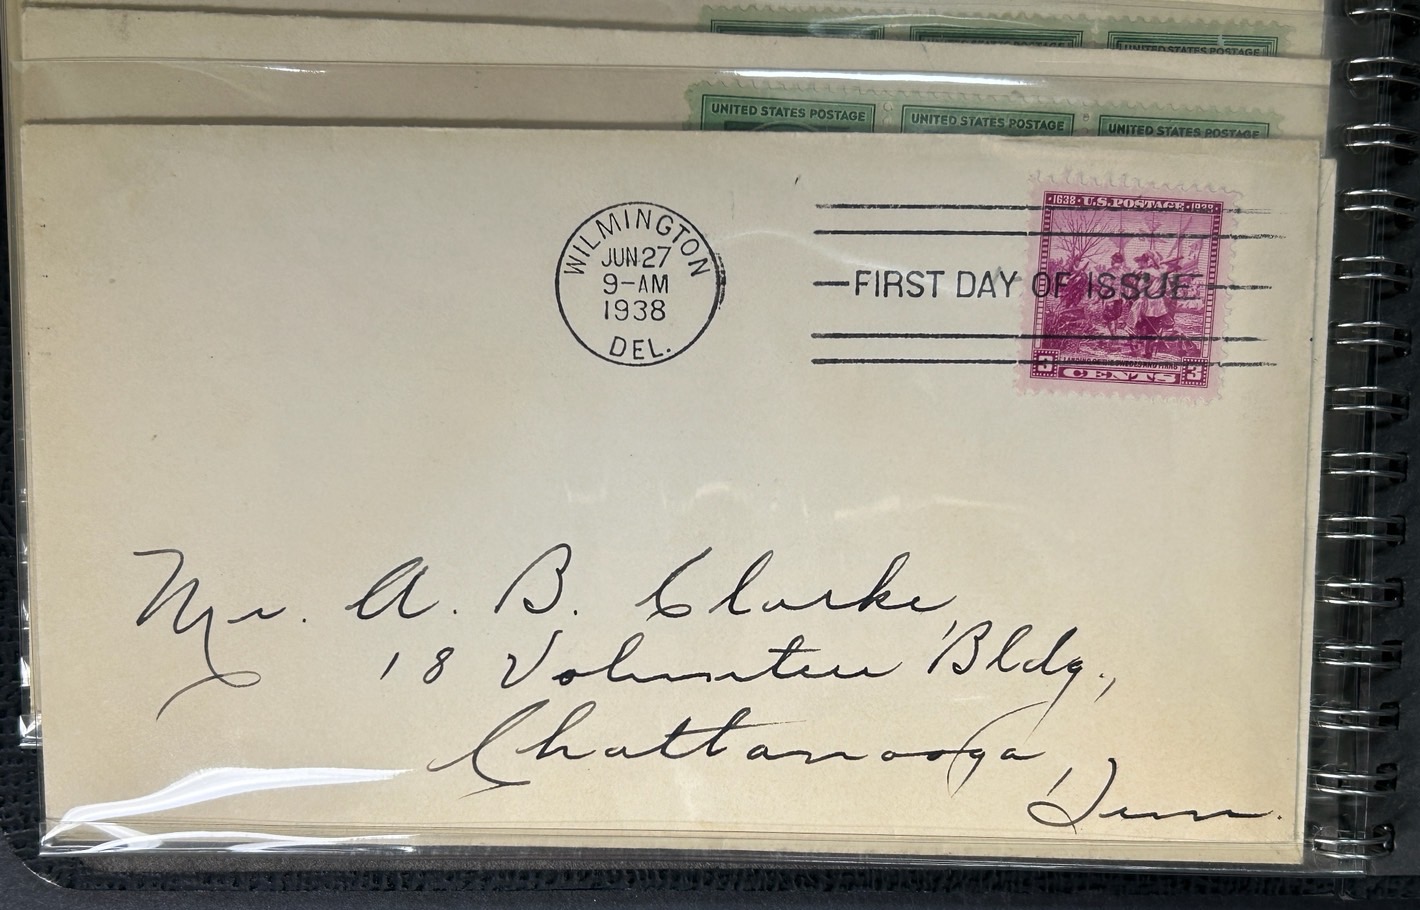 UNITED STATES POSTAGE
UNITED STATES POSTAGE UNITED STATES POSTAGE UNITED STATES POSTAGE
WILMINGTON
JUN 27
9-AM
1938
DEL.
FIRST DAY OF ISSUE
1638 · U.S. POSTAGE · 1938
LANDING OF THE SWEDES AND FINNS
3 CENTS 3
Mr. A. B. Clarke
18 Volunteer Bldg.,
Chattanooga,
Tenn.